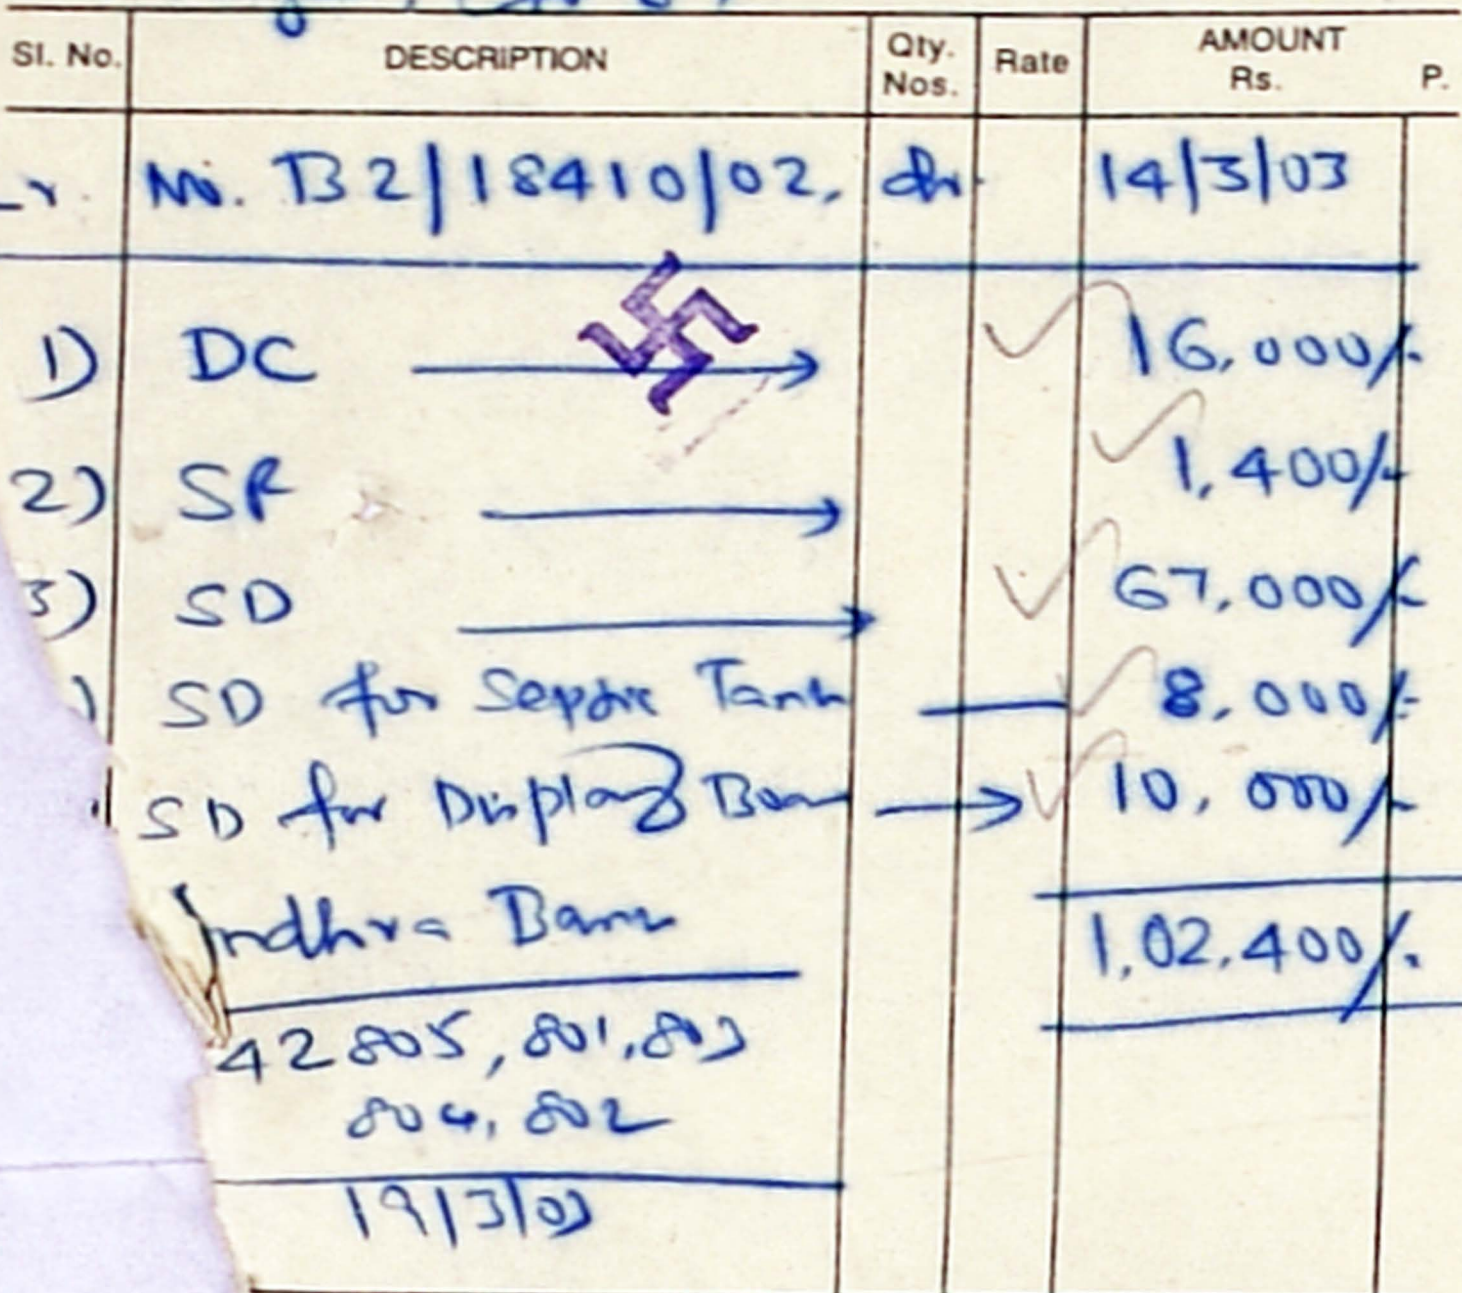 Sl. No. DESCRIPTION Qty. Nos. Rate AMOUNT Rs. P.
Lr. No. B2/18410/02, dt. 14/3/03
1) DC 16,000/-
2) SF 1,400/-
3) SD 67,000/-
) SD for Septic Tank 8,000/-
SD for Display Boa 10,000/-
Andhra Bank 1,02,400/-
42805, 801, 803
804, 802
19/3/03